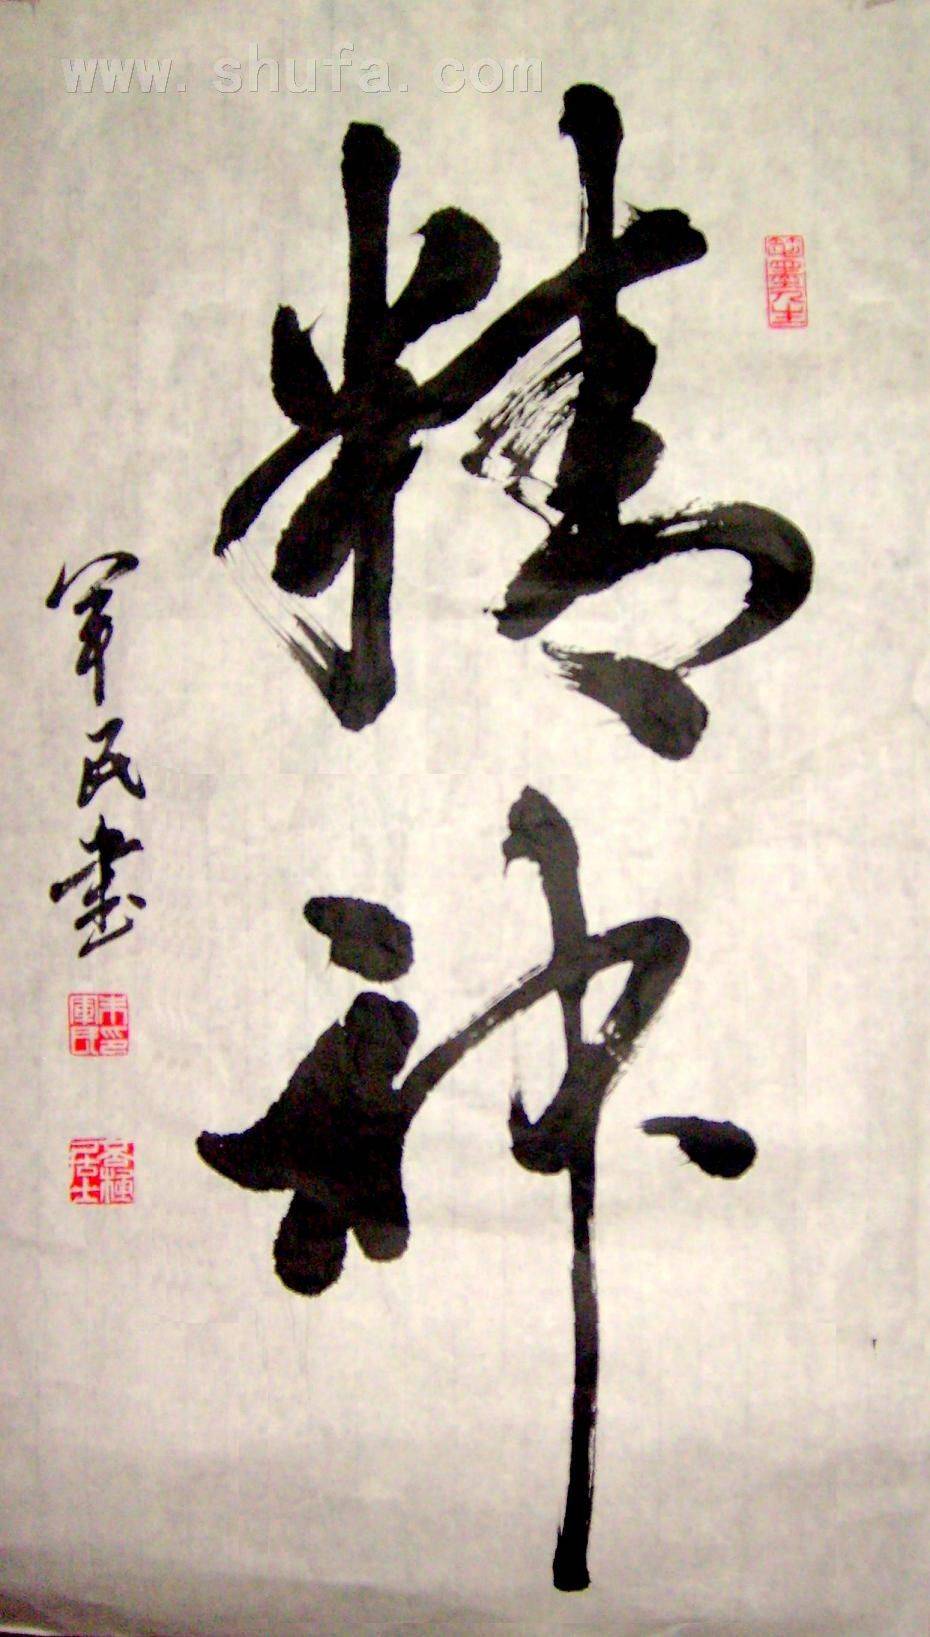 www.shufa.com
精神
军民书